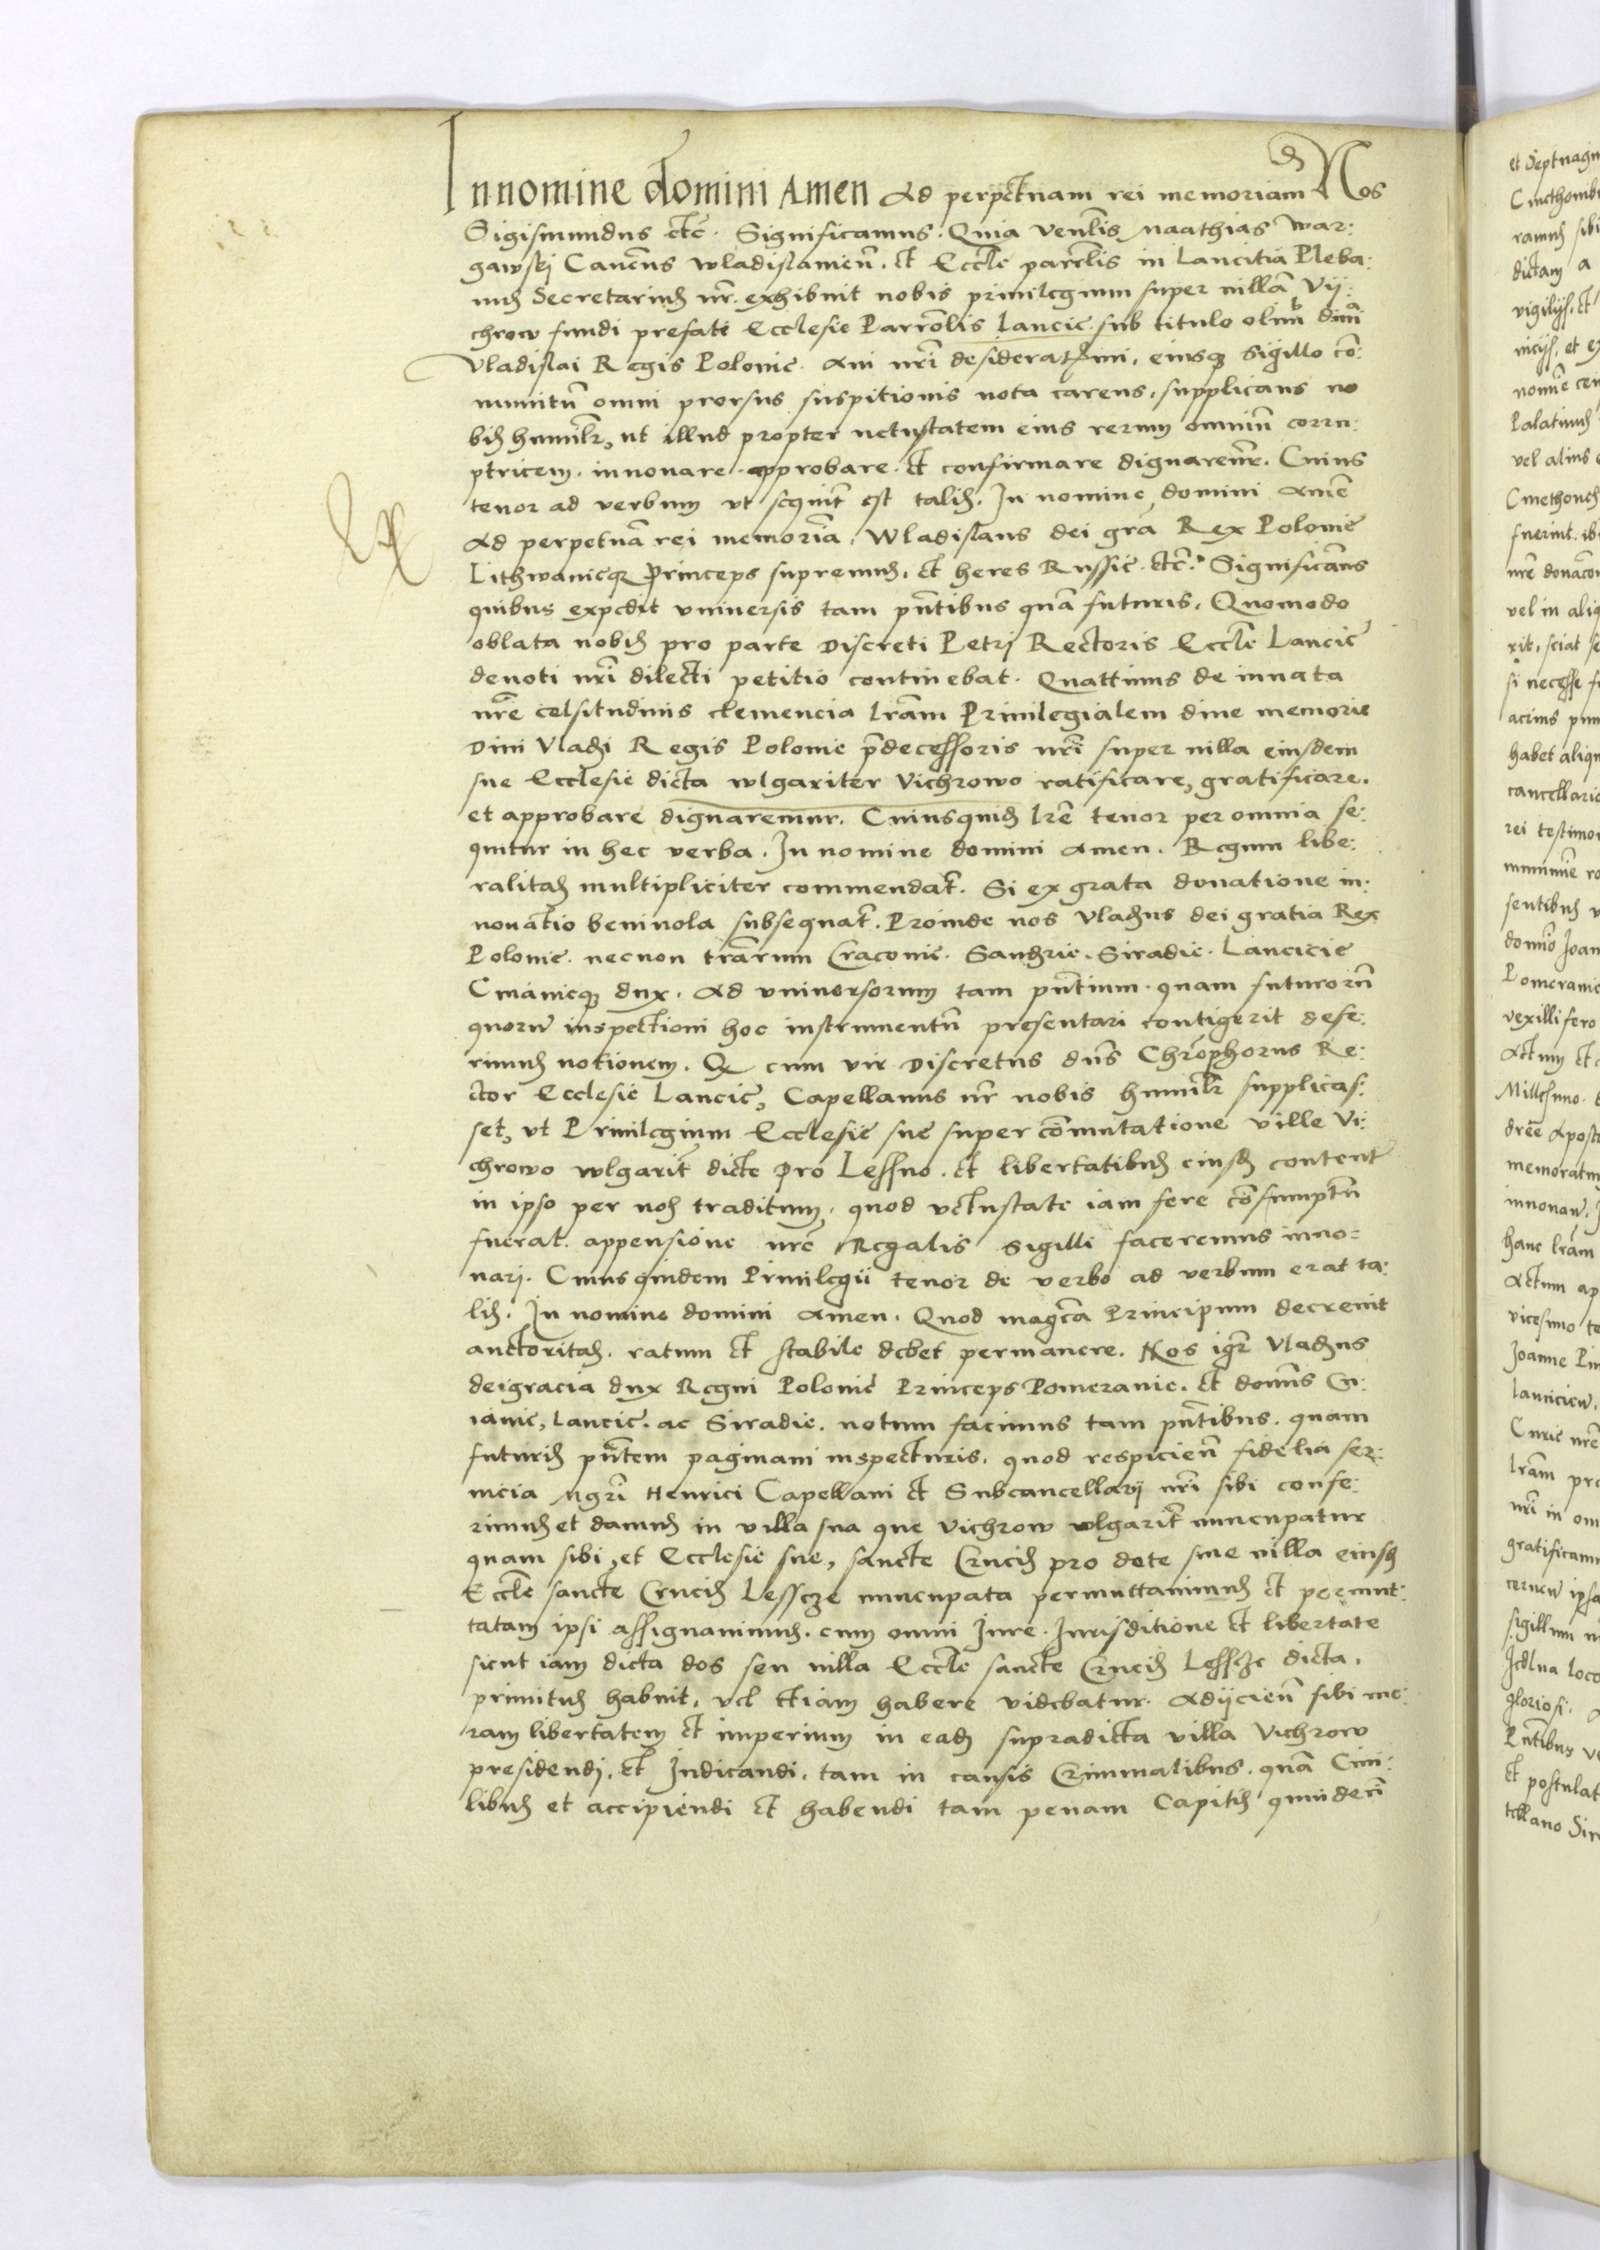 In nomine domini Amen Ad perpetuam rei memoriam Nos
Sigismundus etc. Significamus. Quia Venlis Maathias War:
gawskj Canens wladislauien. et Eccle parrlis in Lancitia Pleba:
nus Secretarius nr. exhibuit nobis priuilegium super uilla Vij:
chrow fundi prefate Ecclesie Parrolis Lancic. sub titulo olim diui
Vladislai Regis Polonie. Aui nri desideratmi, eiusq sigillo co:
munitu omni prorsus suspitionis nota carens, supplicans no
bis humilr, ut illud propter uetustatem eius rerum omniu corru:
ptricem. innouare. approbare. et confirmare dignaremr. Cuius
tenor ad verbum vt sequit est talis. In nomine domini Ame
Ad perpetua rei memoria. Wladislaus dei gra Rex Polonie
Lithwanieq Princeps supremus. et heres Russie. etc. Significams
quibus expedit vniuersis tam pntibus qua futuris. Quomodo
oblata nobis pro parte Discreti Petrj Rectoris Eccle Lancic
deuoti nri dilecti petitio continebat. Quattinus de innata
nre celsitudinis clemencia lram Priuilegialem diue memorie
Diui Vladi Regis Polonie pdecessoris nri super uilla eiusdem
sue Ecclesie dicta wlgariter Vichrowo ratificare, gratificare.
et approbare dignaremur. Cuiusquid lre tenor per omnia se:
quitur in hec verba. In nomine domini Amen. Regum libe:
ralitas multipliciter commendat. Si ex grata donatione in:
nouatio beniuola subsequat. Proinde nos Vladus dei gratia Rex
Polonie. necnon trarum Cracouie. Sandrie. Siradie. Lancicie
Cuiauieq dux. Ad vniuersorum tam pntium. quam futuroru
quoru inspectioni hoc instrumentu presentari contigerit dese:
rimus notionem. Q cum vir Discretus dns Chrophorus Re:
ctor Ecclesie Lancic, Capellanus nr nobis humilr supplicas:
set, vt Priuilegium Ecclesie sue super comutatione ville Vi:
chrowo wlgarit dicte pro Lessno. et libertatibus eiusd content
in ipso per nos traditum, quod vetustate iam fere cosumptu
fuerat. appensione nre Regalis sigilli faceremus inno=
uarj. Cuiusquidem Priuilegii tenor de verbo ad verbum erat ta:
lis. In nomine domini Amen. Quod magca Principum decreuit
auctoritas. ratum et stabile debet permanere. Nos igr Vladus
dei gracia dux Regni Polonie Princeps Pomeranie. et domns Cu:
iauie, Lancic. ac Siradie. notum facimus tam pntibus. quam
futuris pntem paginam inspecturis. quod respicien fidelia ser:
uicia Mgri Henrici Capellani et Subcancellarij nri sibi confe:
rimus et damus in villa sua que Vichrow wlgarit nuncupatur
quam sibi, et Ecclesie sue, sancte Crucis pro dote siue uilla eiusd
Eccle sancte Crucis Lesscze nuncupata permuttauimus et permut:
tatam ipsi assignauimus. cum omni Jure. Jurisditione et libertate
sicut iam dicta dos seu uilla Eccle sancte Crucis Lesscze dicta,
primitus habuit, vel etiam habere videbatur. Adijcien sibi me:
ram libertatem et imperium in eadem supradicta villa Vichrow
presidendj. et Judicandi. tam in causis Criminalibus. qua Ciui:
libus et accipiendi et habendi tam penam Capitis quindeci